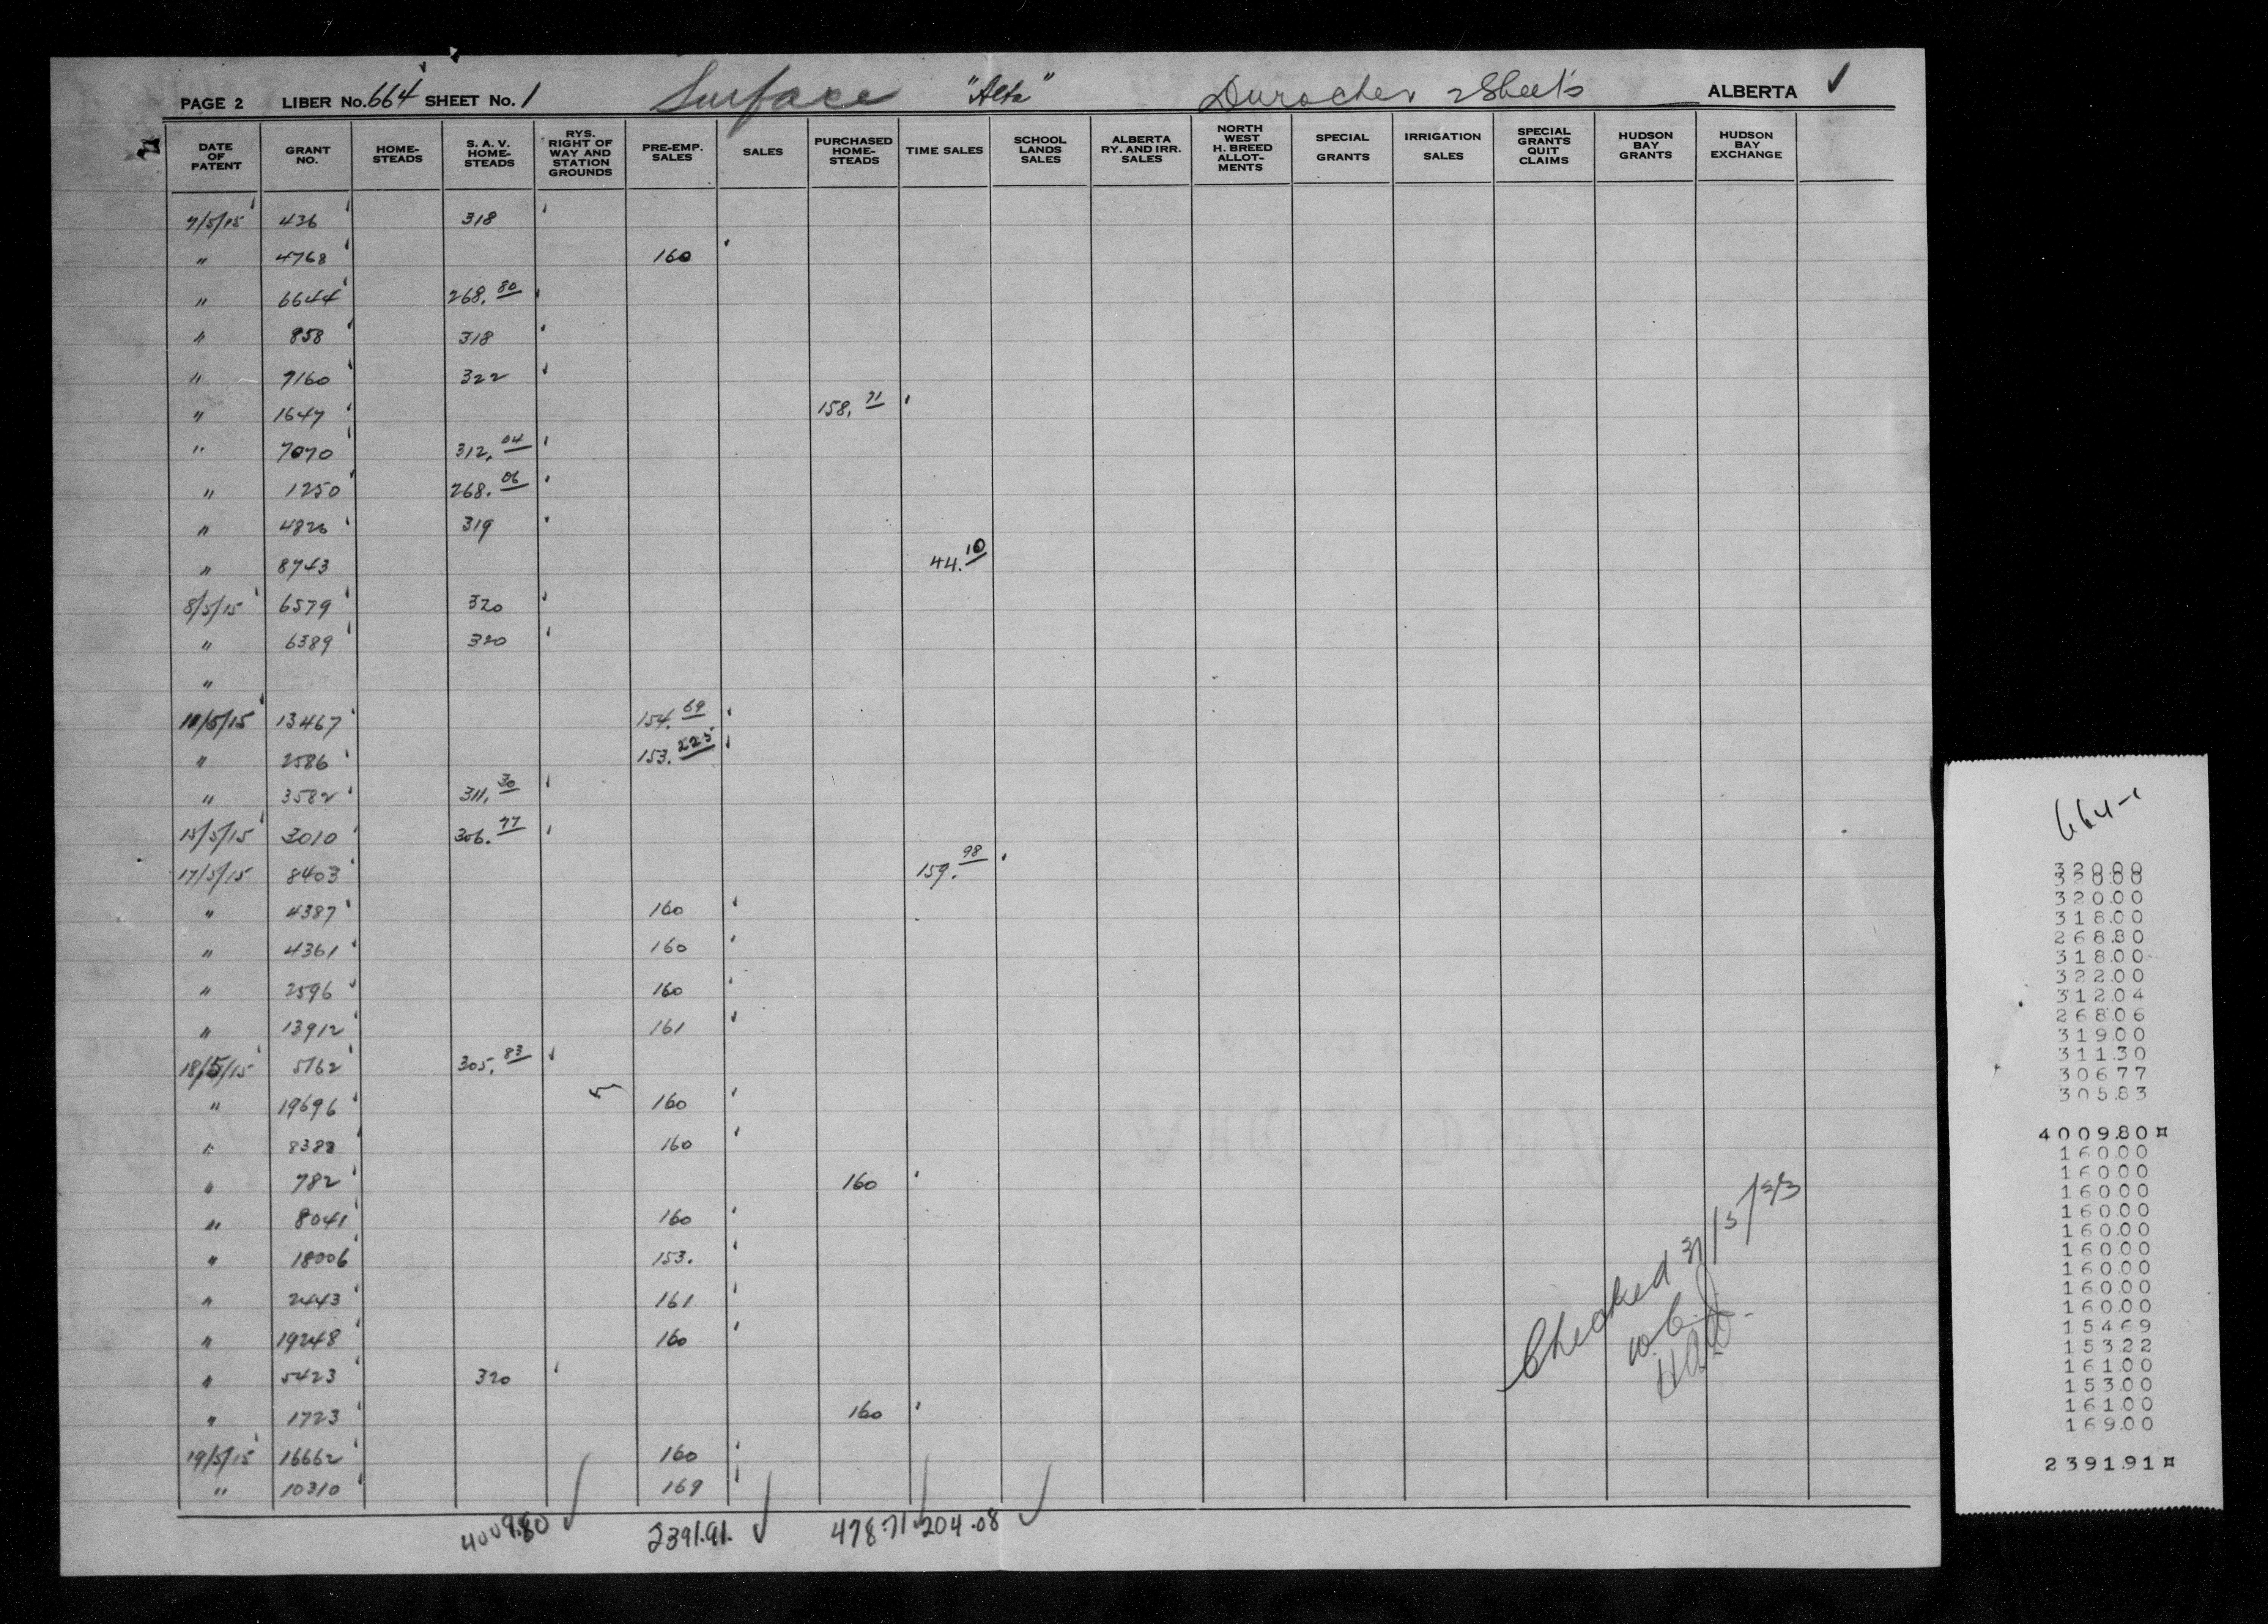 PAGE 2 LIBER No. 664 SHEET No. 1 Surface "Alta" Durocher 2 Sheets ALBERTA ✓
DATE OF PATENT GRANT NO. HOME-STEADS S. A. V. HOME-STEADS RYS. RIGHT OF WAY AND STATION GROUNDS PRE-EMP. SALES SALES PURCHASED HOME-STEADS TIME SALES SCHOOL LANDS SALES ALBERTA RY. AND IRR. SALES NORTH WEST H. BREED ALLOT-MENTS SPECIAL GRANTS IRRIGATION SALES SPECIAL GRANTS QUIT CLAIMS HUDSON BAY GRANTS HUDSON BAY EXCHANGE
7/5/15 436 318
" 4768 160
" 6644 268.80
" 858 318
" 7160 322
" 1647 158.71
" 7070 312.04
" 1250 268.06
" 4826 319
" 8743 44.10
8/5/15 6579 320
" 6389 320
"
11/5/15 13467 154.69
" 2586 153.225
" 3582 311.30
15/5/15 3010 306.77
17/5/15 8403 159.98
" 4387 160
" 4361 160
" 2596 160
" 13912 161
18/5/15 5762 305.83
" 19696 160
" 8388 160
" 782 160
" 8041 160
" 18006 153.
" 2443 161
" 19248 160
" 5423 320
" 1723 160
19/5/15 16662 160
" 10310 169
4009.80 ✓ 2391.91. ✓ 478.71 ✓ 204.08 ✓
Checked 31/5/33
664-1
320.00
320.00
320.00
318.00
268.80
318.00
322.00
312.04
268.06
319.00
311.30
306.77
305.83
4009.80¤
160.00
160.00
160.00
160.00
160.00
160.00
160.00
160.00
160.00
154.69
153.22
161.00
153.00
161.00
169.00
2391.91¤